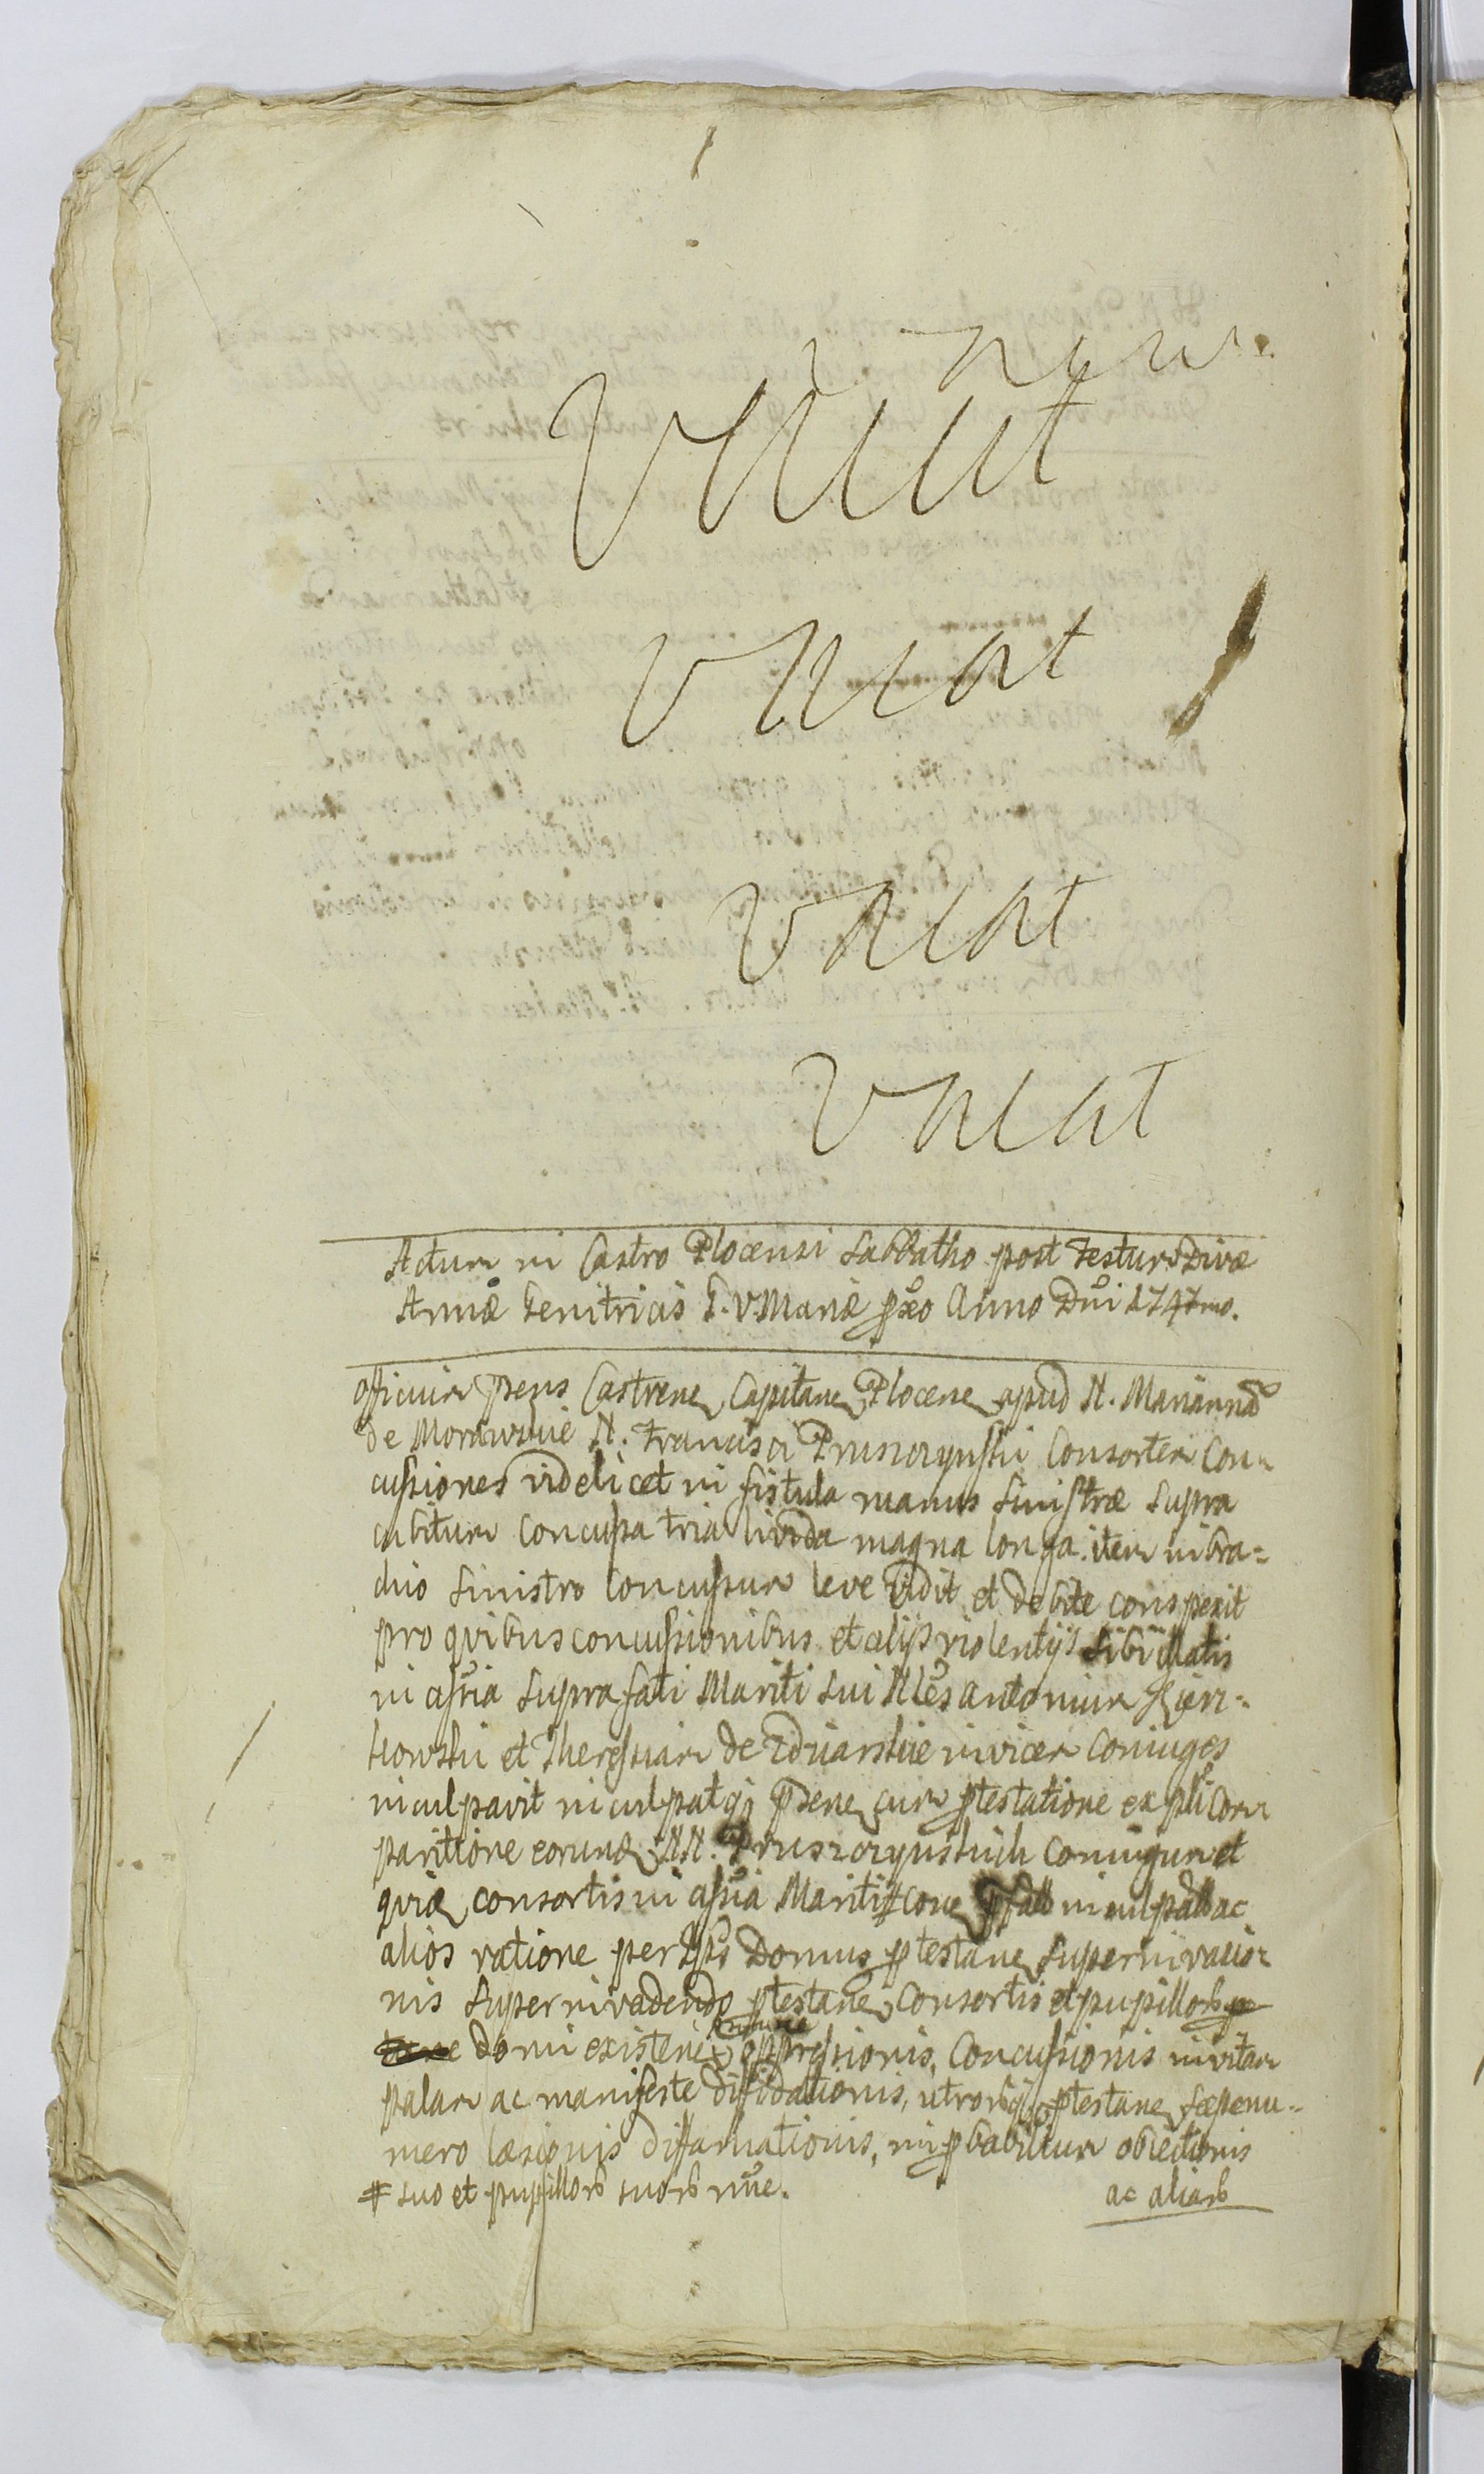 Vacat
Vacat
Vacat
Vacat
Actum in Castro Plocensi Sabbatho post Festum Divæ
Annæ Genitricis B. V. Mariæ pxo Anno Dni 1747mo.
Officium pens Castrene Capitane Plocene apud N. Mariannã
de Morawskie N. Francisci Pruszczynski Consortem Con-
cussiones videlicet in fistula manus sinistræ supra
cubitum concussa tria livida magna longa. item in bra=
chio sinistro concussum leve vidit et debite conspexit
pro quibus concussionibus et alijs violentijs sibi illatis
in assña suprafati Mariti sui Nles Antonium
et Theressiam de invicem Coniuges
inculpavit inculpatqj psene cum ptestatione expli Com
paritione eorund NN. Pruszczynskich Coniugum et
quid consortis in assña Mariti # cone pfatos inculpatos ac
alios ratione per Ipso Domus ptestane superinvasio-
nis superinvadendo ptestane, Consortis et pupillorb
domi existeni oppressionis, Concussionis in vitam
palam ac manifeste diffidationis, utrorbqj ptestane sæpenu-
mero læsionis diffamationis, improbabilium obiectionis
# suo et pupillorb suorb nne.
ac aliarb